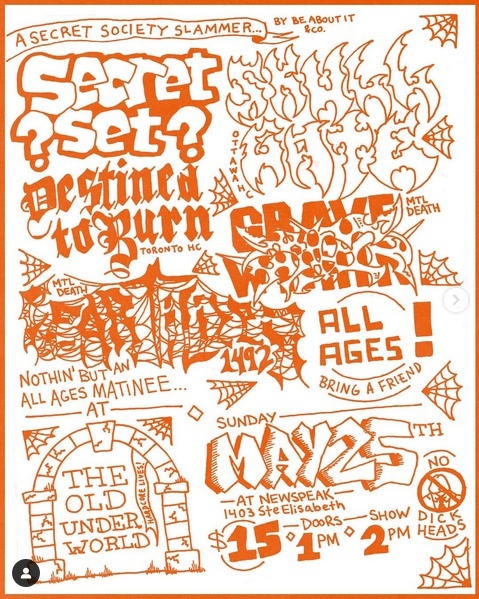 A SECRET SOCIETY SLAMMER...
BY BE ABOUT IT
&CO.
Secret
?Set?
OTTAWA HC
Destined
to Burn
TORONTO HC
MTL
DEATH
GRAVE
MTL
DEATH
1492
ALL
AGES!
BRING A FRIEND
NOTHIN' BUT AN
ALL AGES MATINEE...
AT
THE
OLD
UNDER
WORLD
HARDCORE LIVES!
SUNDAY
MAY 25TH
AT NEWSPEAK
1403 Ste Elisabeth
$15
DOORS
1PM
SHOW
2PM
NO
DICK
HEADS